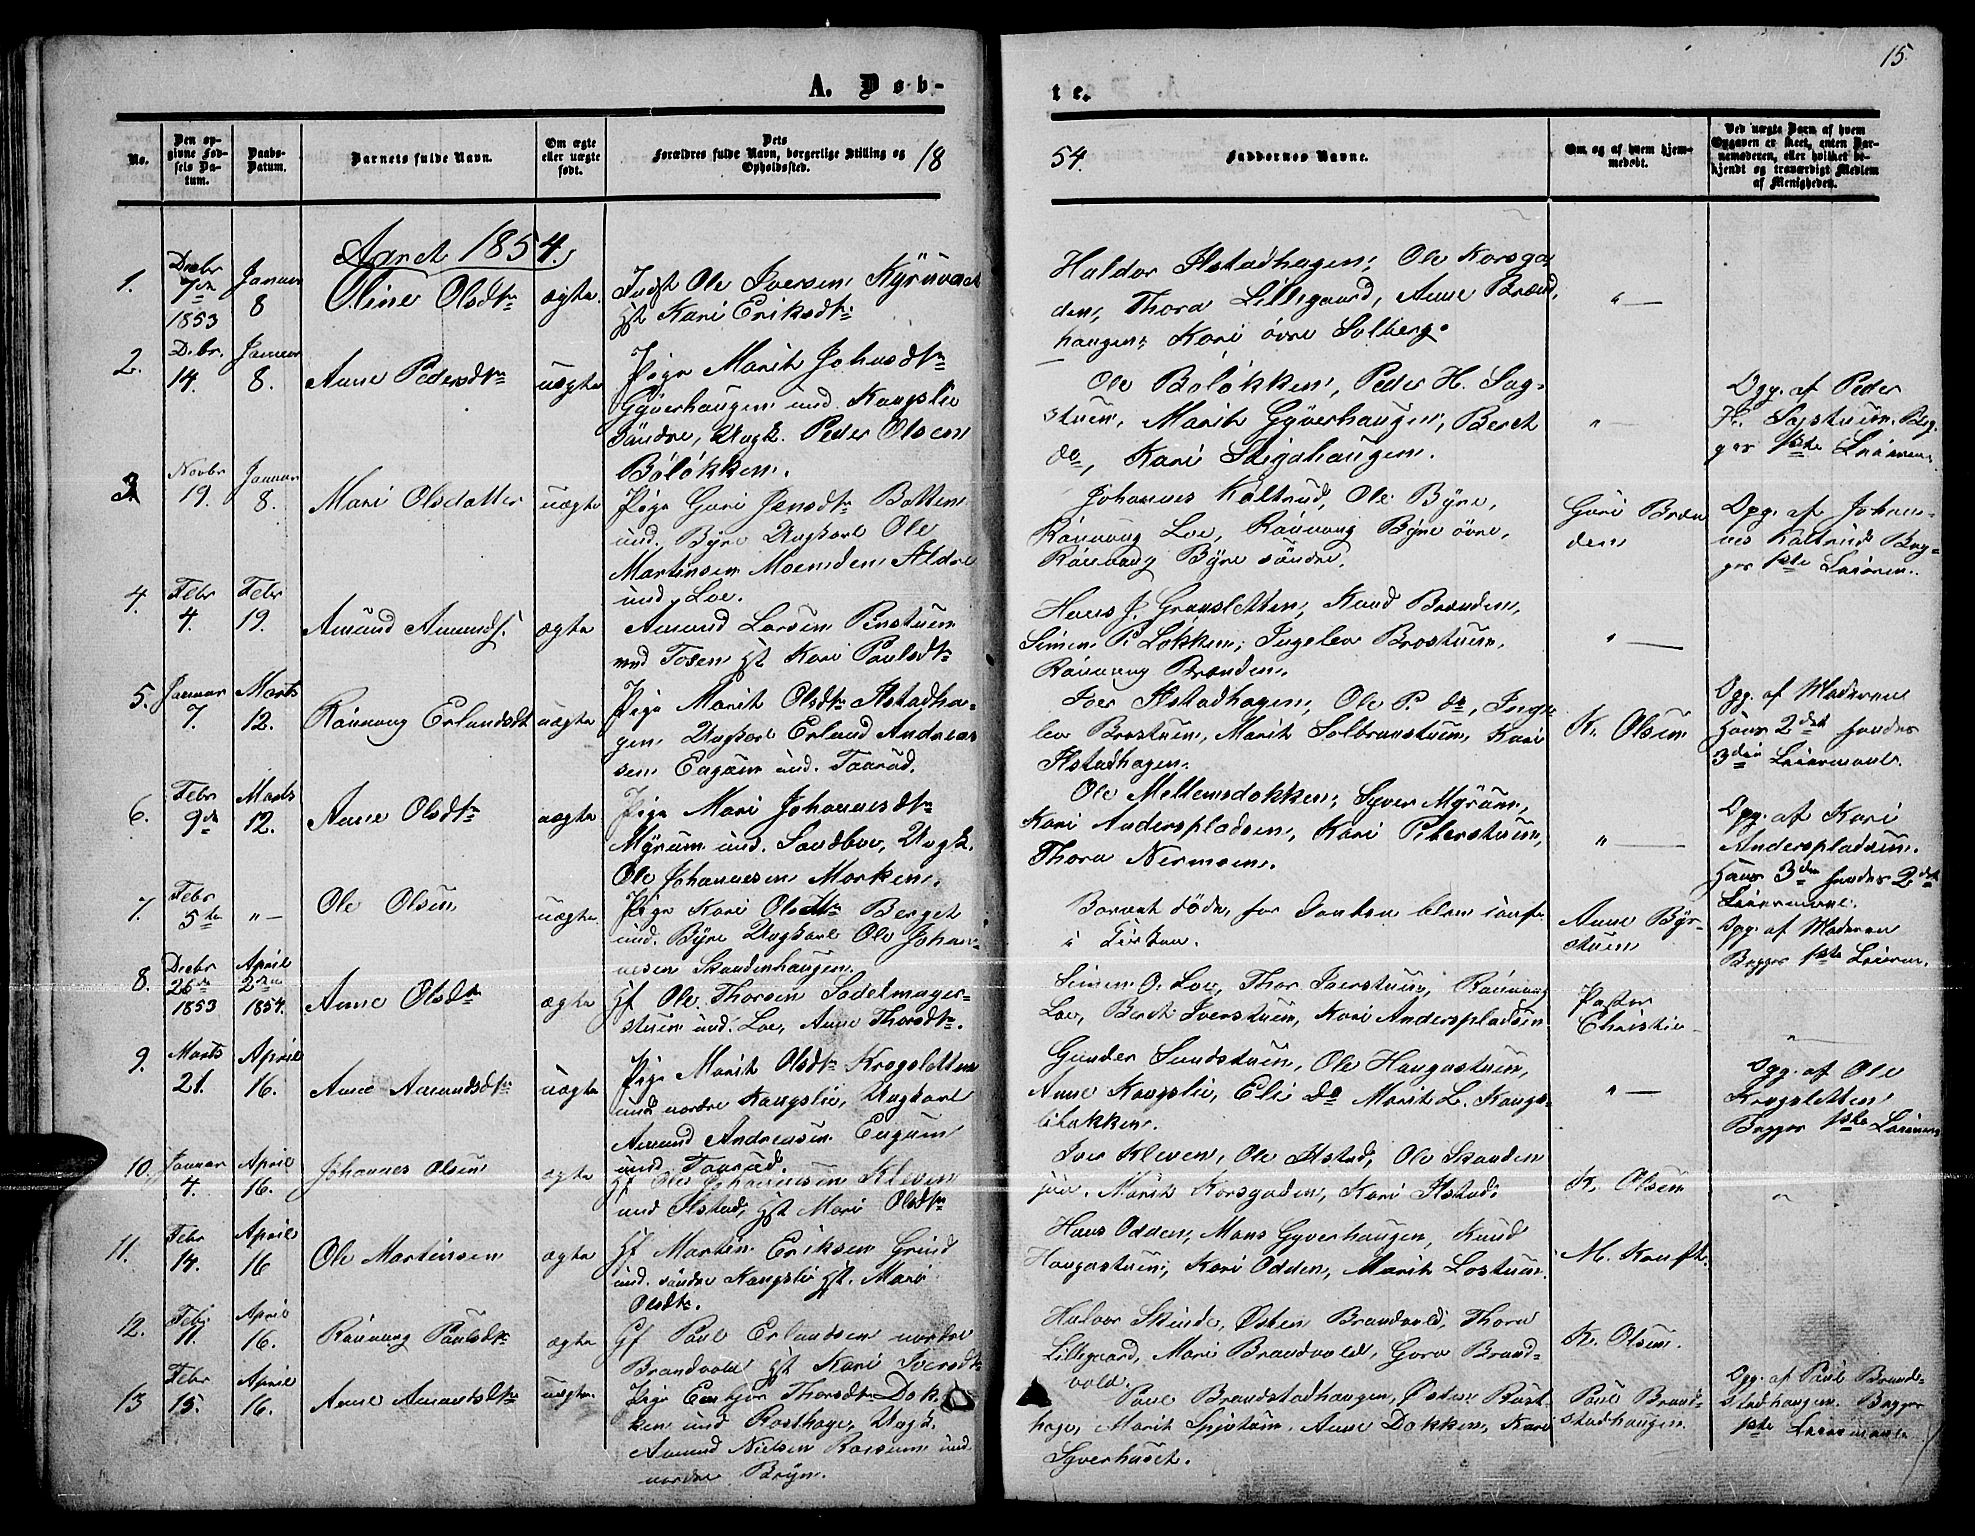 15.
A. Døb-
te.
No.
Den op-
givne Fød-
sels Da-
tum.
Daabs-
Datum.
Barnets fulde Navn.
Om ægte
eller uægte
født.
Dets
Forældres fulde Navn, borgerlige Stilling og
Opholdssted.
18
54.
Faddernes Navne.
Om og af hvem hjem-
medøbt.
Ved uægte Barn af hvem
Opgaven er skeet, enten Bar-
nemoderen, eller hvilket be-
kjendt og troværdigt Medlem
af Menigheden.
Aaret 1854.
1.
Decbr
7de
1853
Januar
8
Oline Olsdtr
ægte
Ole Iversen
Kari Eriksdtr
Haldor Ilstadhagen, Ole Korsga
den, Thora Lillegaard, Anne Brænd
haugen, Kari øvre Solberg.
2.
Debr.
14.
Januar
8.
Anne Pedersdtr
uægte
Pige Marit Johnsdtr
Gyverhaugen und Kongslie
søndre, Ungk. Peder Olsen
Böløkken.
Ole Böløkken, Peder H. Sag-
stuen, Marit Gyverhaugen, Beret
do, Kari Stigahaugen.
Opg. af Peder
H. Sagstuen. Beg-
ges 1ste Leierm.
3
Novbr
19.
Januar
8.
Mari Olsdatter
uægte
Pige Guri Jensdtr Botten
und. Byre Ungkarl Ole
Martinsen
und. Loe.
Johannes Kaltrud, Ole Byre,
Rönnaug Loe, Rönnaug Byre øvre,
Rönnaug Byre søndre.
Guri Bræn
den
Opg. af Johan-
nes Kaltrud. Beg-
ges 1ste Leierm.
4.
Febr
4.
Febr
19.
Amund Amunds.
ægte
Amund Larsen
und Tofsen Kari Paulsdtr
Hans J. Gransletten, Knud Brænden,
Simen P. Løkken, Ingelev Brostuen,
Rönnaug Brænden.
5.
Januar
7.
Marts
12.
Rönnaug Erlandsdt
uægte
Pige Marit Olsdtr Ilstadha-
gen Ungkarl Erland Andreas
sen Engum und. Taarud.
Iver Ilstadhagen, Ole P. do, Inge-
lev Brostuen, Marit Solbranstuen, Kari
Ilstadhagen.
K. Olsen
Opg. af Moderen
Hans 2det hendes
3die Leiermaal.
6.
Febr
9de
Marts
12.
Anne Olsdtr
uægte
Pige Mari Johannesdtr
Myrum und. Sandboe, Ungk.
Ole Johannesen Morken.
Ole Mellemsdokken, Syver Myrum,
Kari Anderspladsen, Kari Peterstuen,
Thora Nermoen.
Opg. af Kari
Anderspladsen.
Hans 3die hendes 2det
Leiermaal.
7.
Febr
5te
Ole Olsen
uægte
Pige Kari Olsdtr Berget
und. Byre Ungkarl Ole Johan-
nesen Skandenhaugen.
Barnet døde, før Daaben blev
i Kirken.
Anne Byr-
stuen
Opg. af Moderen
Begges 1ste Leierm.
8.
Decbr
26de
1853
April
2den
1854.
Anne Olsdtr
ægte
Ole Thorsen Sadelmager-
stuen und. Loe, Anne Thorsdtr.
Simen O. Loe, Thor Iverstuen, Rönnaug
Loe, Berdt Iverstuen, Kari Anderspladsen
Pastor
Christie
9.
Marts
21.
April
16.
Anne Amundsdtr
uægte
Pige Marit Olsdtr Krogsletten
und nordre Kongslie, Ungkarl
Amund Andreasen Engum
und. Taarud.
Gunder Sundstuen, Ole Haugastuen,
Anne Kongslie, Eli do Marit L. Kongs-
liløkken.
Opg. af Ole
Krogsletten
Begges 1ste Leierm.
10.
Januar
4.
April
16.
Johannes Olsen
ægte
Ole Johannesen Kleven
und Ilstad, Mari Olsdtr
Iver Kleven, Ole Ilstad, Ole Skanden
Marit Korsgaden, Kari Ilstad.
K. Olsen
11.
Febr
14.
April
16
Ole Martinsen
ægte
Martin Eriksen Grind
und. søndre Kongslie Mari
Olsdtr.
Hans Odden, Mons Gyverhaugen, Knud
Haugastuen, Kari Odden, Marit Lostuen.
12.
Febr
11.
April
16.
Rönnaug Paulsdtr
ægte
Paul Erlandsen nordre
Brandvold Kari Iversdtr
Halvor Skinde, Østen Brandvold, Thora
Lillegaard, Mari Brandvold, Goro Brand-
vold.
K. Olsen.
13
Febr
15.
April
16.
Anne Amundsdtr
uægte
Pige Thorsdtr Dok
ken und Rosthage, Ungk.
Amund Nielsen und
nordre Bryn.
Paul Brandstadhaugen, Østen Rust-
hage, Marit Anne Dokken, Kari
Syverhuset.
Paul Brand-
stadhaugen.
Opg. af Paul Brand-
stadhaugen. Begges
1ste Leiermaal